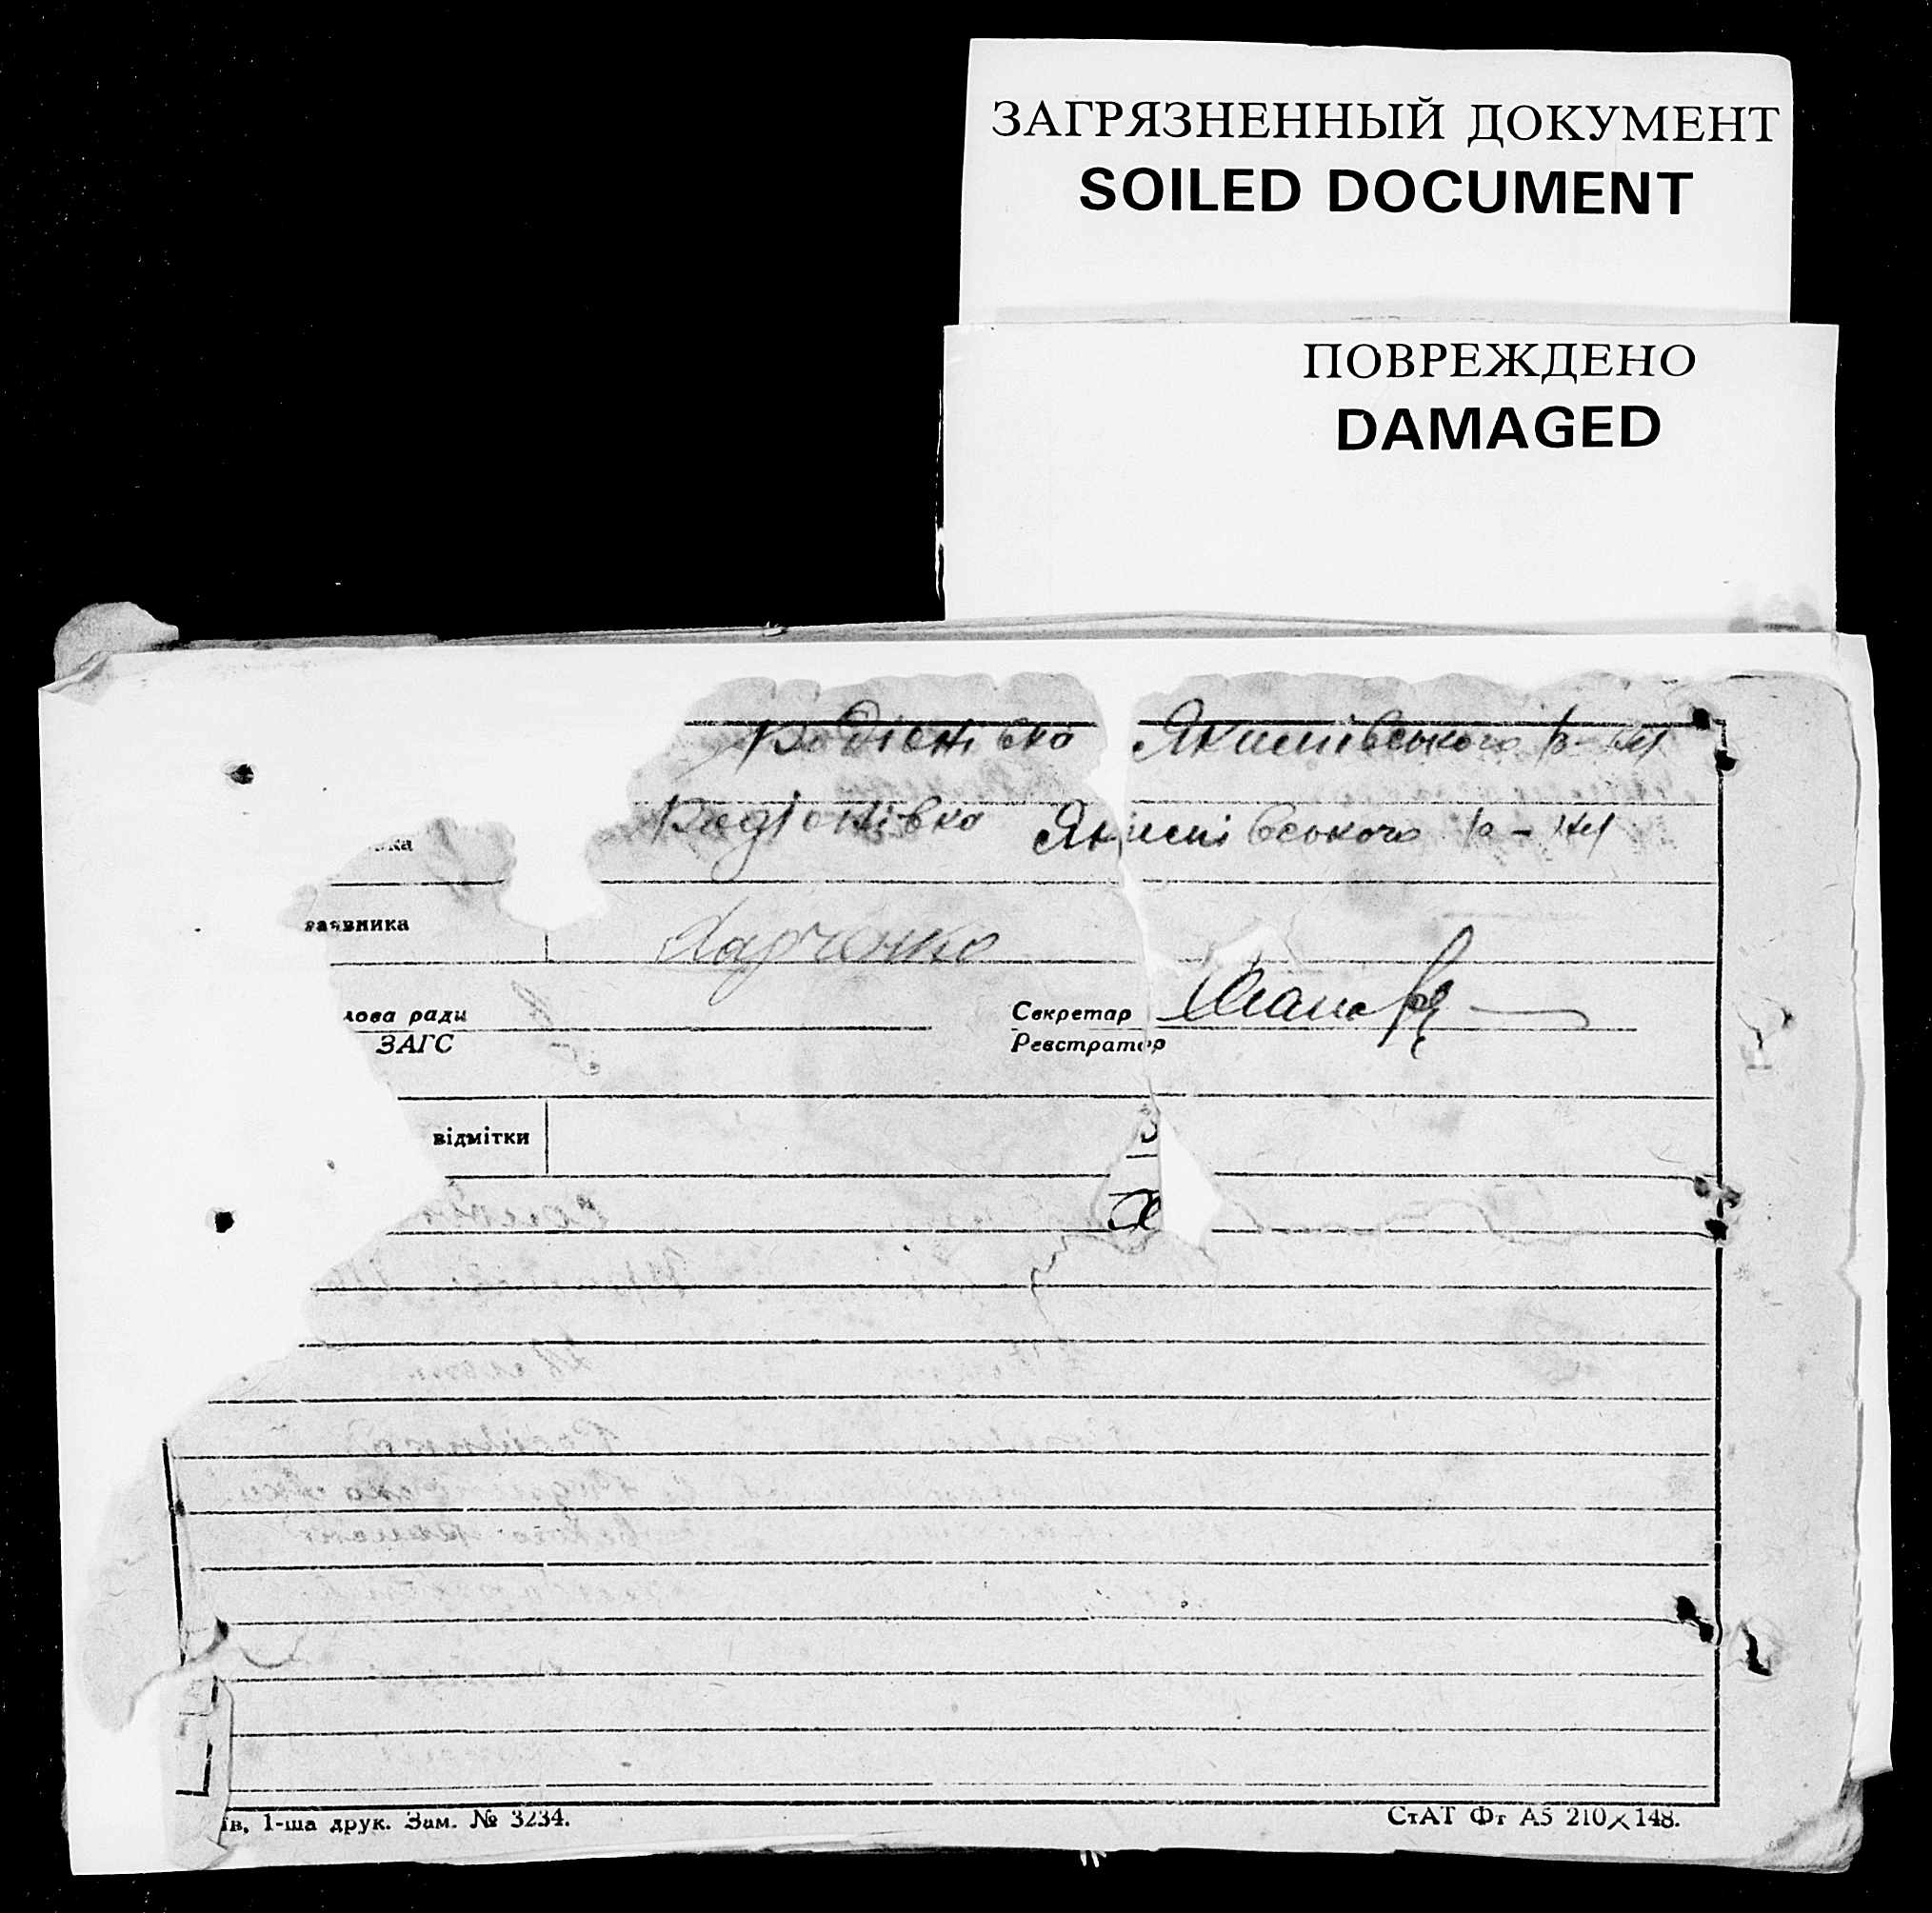 ЗАГРЯЗНЕННЫЙ ДОКУМЕНТ
SOILED DOCUMENT
ПОВРЕЖДЕНО
DAMAGED
Родіонівка Якимівського р-ну
Радіонівка Якимівського р-ну
ка
заявника Харченко
лова ради
ЗАГС
Секретар
Реєстратор
відмітки
їв, 1-ша друк. Зам. № 3234.
СтАТ Фт А5 210×148.